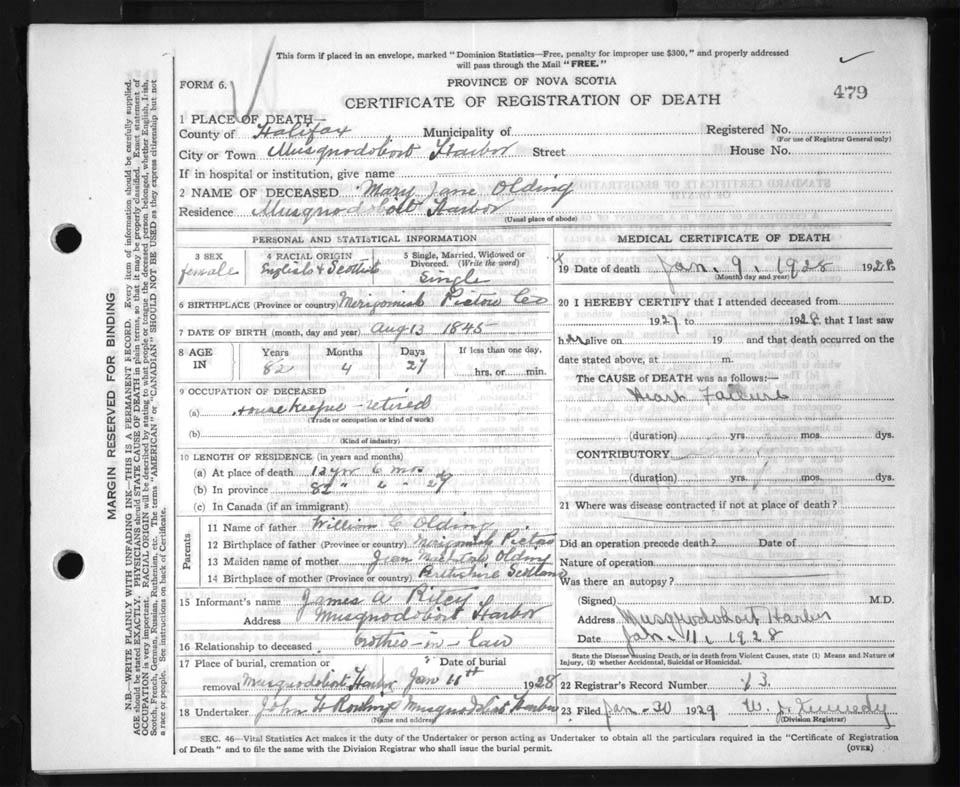 This form if placed in an envelope, marked "Dominion Statistics—Free, penalty for improper use $300," and properly addressed
will pass through the Mail "FREE."
FORM 6.
PROVINCE OF NOVA SCOTIA
CERTIFICATE OF REGISTRATION OF DEATH
479
1 PLACE OF DEATH—
County of Halifax Municipality of Registered No.
(For use of Registrar General only)
City or Town Musquodoboit Harbor Street House No.
If in hospital or institution, give name
2 NAME OF DECEASED Mary Jane Olding
Residence Musquodoboit Harbor
(Usual place of abode)
PERSONAL AND STATISTICAL INFORMATION
3 SEX 4 RACIAL ORIGIN 5 Single, Married, Widowed or Divorced. (Write the word)
female English & Scottish Single
6 BIRTHPLACE (Province or country) Merigomish Pictou Co
7 DATE OF BIRTH (month, day and year) Aug 13 1845
8 AGE IN Years Months Days If less than one day,
82 4 27 hrs. or min.
9 OCCUPATION OF DECEASED
(a) House keeper - retired
(Trade or occupation or kind of work)
(b)
(Kind of industry)
10 LENGTH OF RESIDENCE (in years and months)
(a) At place of death 12 yrs 6 mos
(b) In province 82 " 4 " 27
(c) In Canada (if an immigrant)
Parents
11 Name of father William C Olding
12 Birthplace of father (Province or country) Merigomish Pictou
13 Maiden name of mother Jean Olding
14 Birthplace of mother (Province or country) Perthshire Scotland
15 Informant's name James A Riley
Address Musquodoboit Harbor
16 Relationship to deceased brother-in-law
17 Place of burial, cremation or removal Date of burial
Musquodoboit Harbor Jan 11th 1928
18 Undertaker John H Musquodoboit Harbor
(Name and address)
MEDICAL CERTIFICATE OF DEATH
19 Date of death Jan. 9, 1928 1928
(Month, day and year)
20 I HEREBY CERTIFY that I attended deceased from
1927 to 1928, that I last saw
her alive on 19 and that death occurred on the
date stated above, at m.
The CAUSE of DEATH was as follows:—
Heart Failure
(duration) yrs. mos. dys.
CONTRIBUTORY
(duration) yrs. mos. dys.
21 Where was disease contracted if not at place of death?
Did an operation precede death? Date of
Nature of operation
Was there an autopsy?
(Signed) M.D.
Address Musquodoboit Harbor
Date Jan. 11, 1928
State the Disease causing Death, or in death from Violent Causes, state (1) Means and Nature of
Injury, (2) whether Accidental, Suicidal or Homicidal.
22 Registrar's Record Number 13.
23 Filed Jan-30 1929 W. J.
(Division Registrar)
SEC. 46—Vital Statistics Act makes it the duty of the Undertaker or person acting as Undertaker to obtain all the particulars required in the "Certificate of Registration
of Death" and to file the same with the Division Registrar who shall issue the burial permit.
(OVER)
MARGIN RESERVED FOR BINDING
N.B.—WRITE PLAINLY WITH UNFADING INK—THIS IS A PERMANENT RECORD. Every item of information should be carefully supplied.
AGE should be stated EXACTLY. PHYSICIANS should STATE CAUSE OF DEATH in plain terms, so that it may be properly classified. Exact statement of
OCCUPATION is very important. RACIAL ORIGIN will be described by stating to what people or tongue the deceased person belonged, whether English, Irish,
Scotch, French, German, Russian, Ruthenian, etc. The terms "AMERICAN" or "CANADIAN" SHOULD NOT BE USED as they express citizenship but not
a race or people. See instructions on back of Certificate.